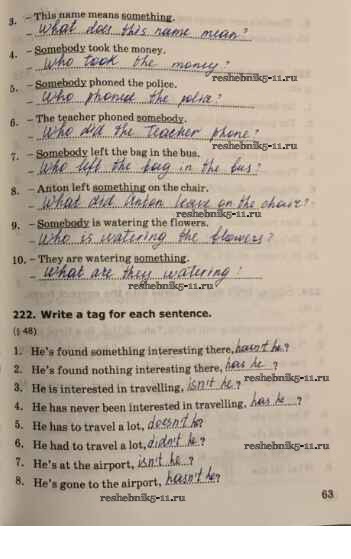 3. – This name means something.
– What does this name mean?
4. – Somebody took the money.
– Who took the money?
reshebnik5-11.ru
5. – Somebody phoned the police.
– Who phoned the police?
6. – The teacher phoned somebody.
– Who did the teacher phone?
reshebnik5-11.ru
7. – Somebody left the bag in the bus.
– Who left the bag in the bus?
8. – Anton left something on the chair.
– What did Anton leave on the chair?
reshebnik5-11.ru
9. – Somebody is watering the flowers.
– Who is watering the flowers?
10. – They are watering something.
– What are they watering?
reshebnik5-11.ru
222. Write a tag for each sentence.
(§ 48)
1. He's found something interesting there, hasn't he?
2. He's found nothing interesting there, has he?
reshebnik5-11.ru
3. He is interested in travelling, isn't he?
4. He has never been interested in travelling, has he?
5. He has to travel a lot, doesn't he?
6. He had to travel a lot, didn't he?
reshebnik5-11.ru
7. He's at the airport, isn't he?
8. He's gone to the airport, hasn't he?
reshebnik5-11.ru
63